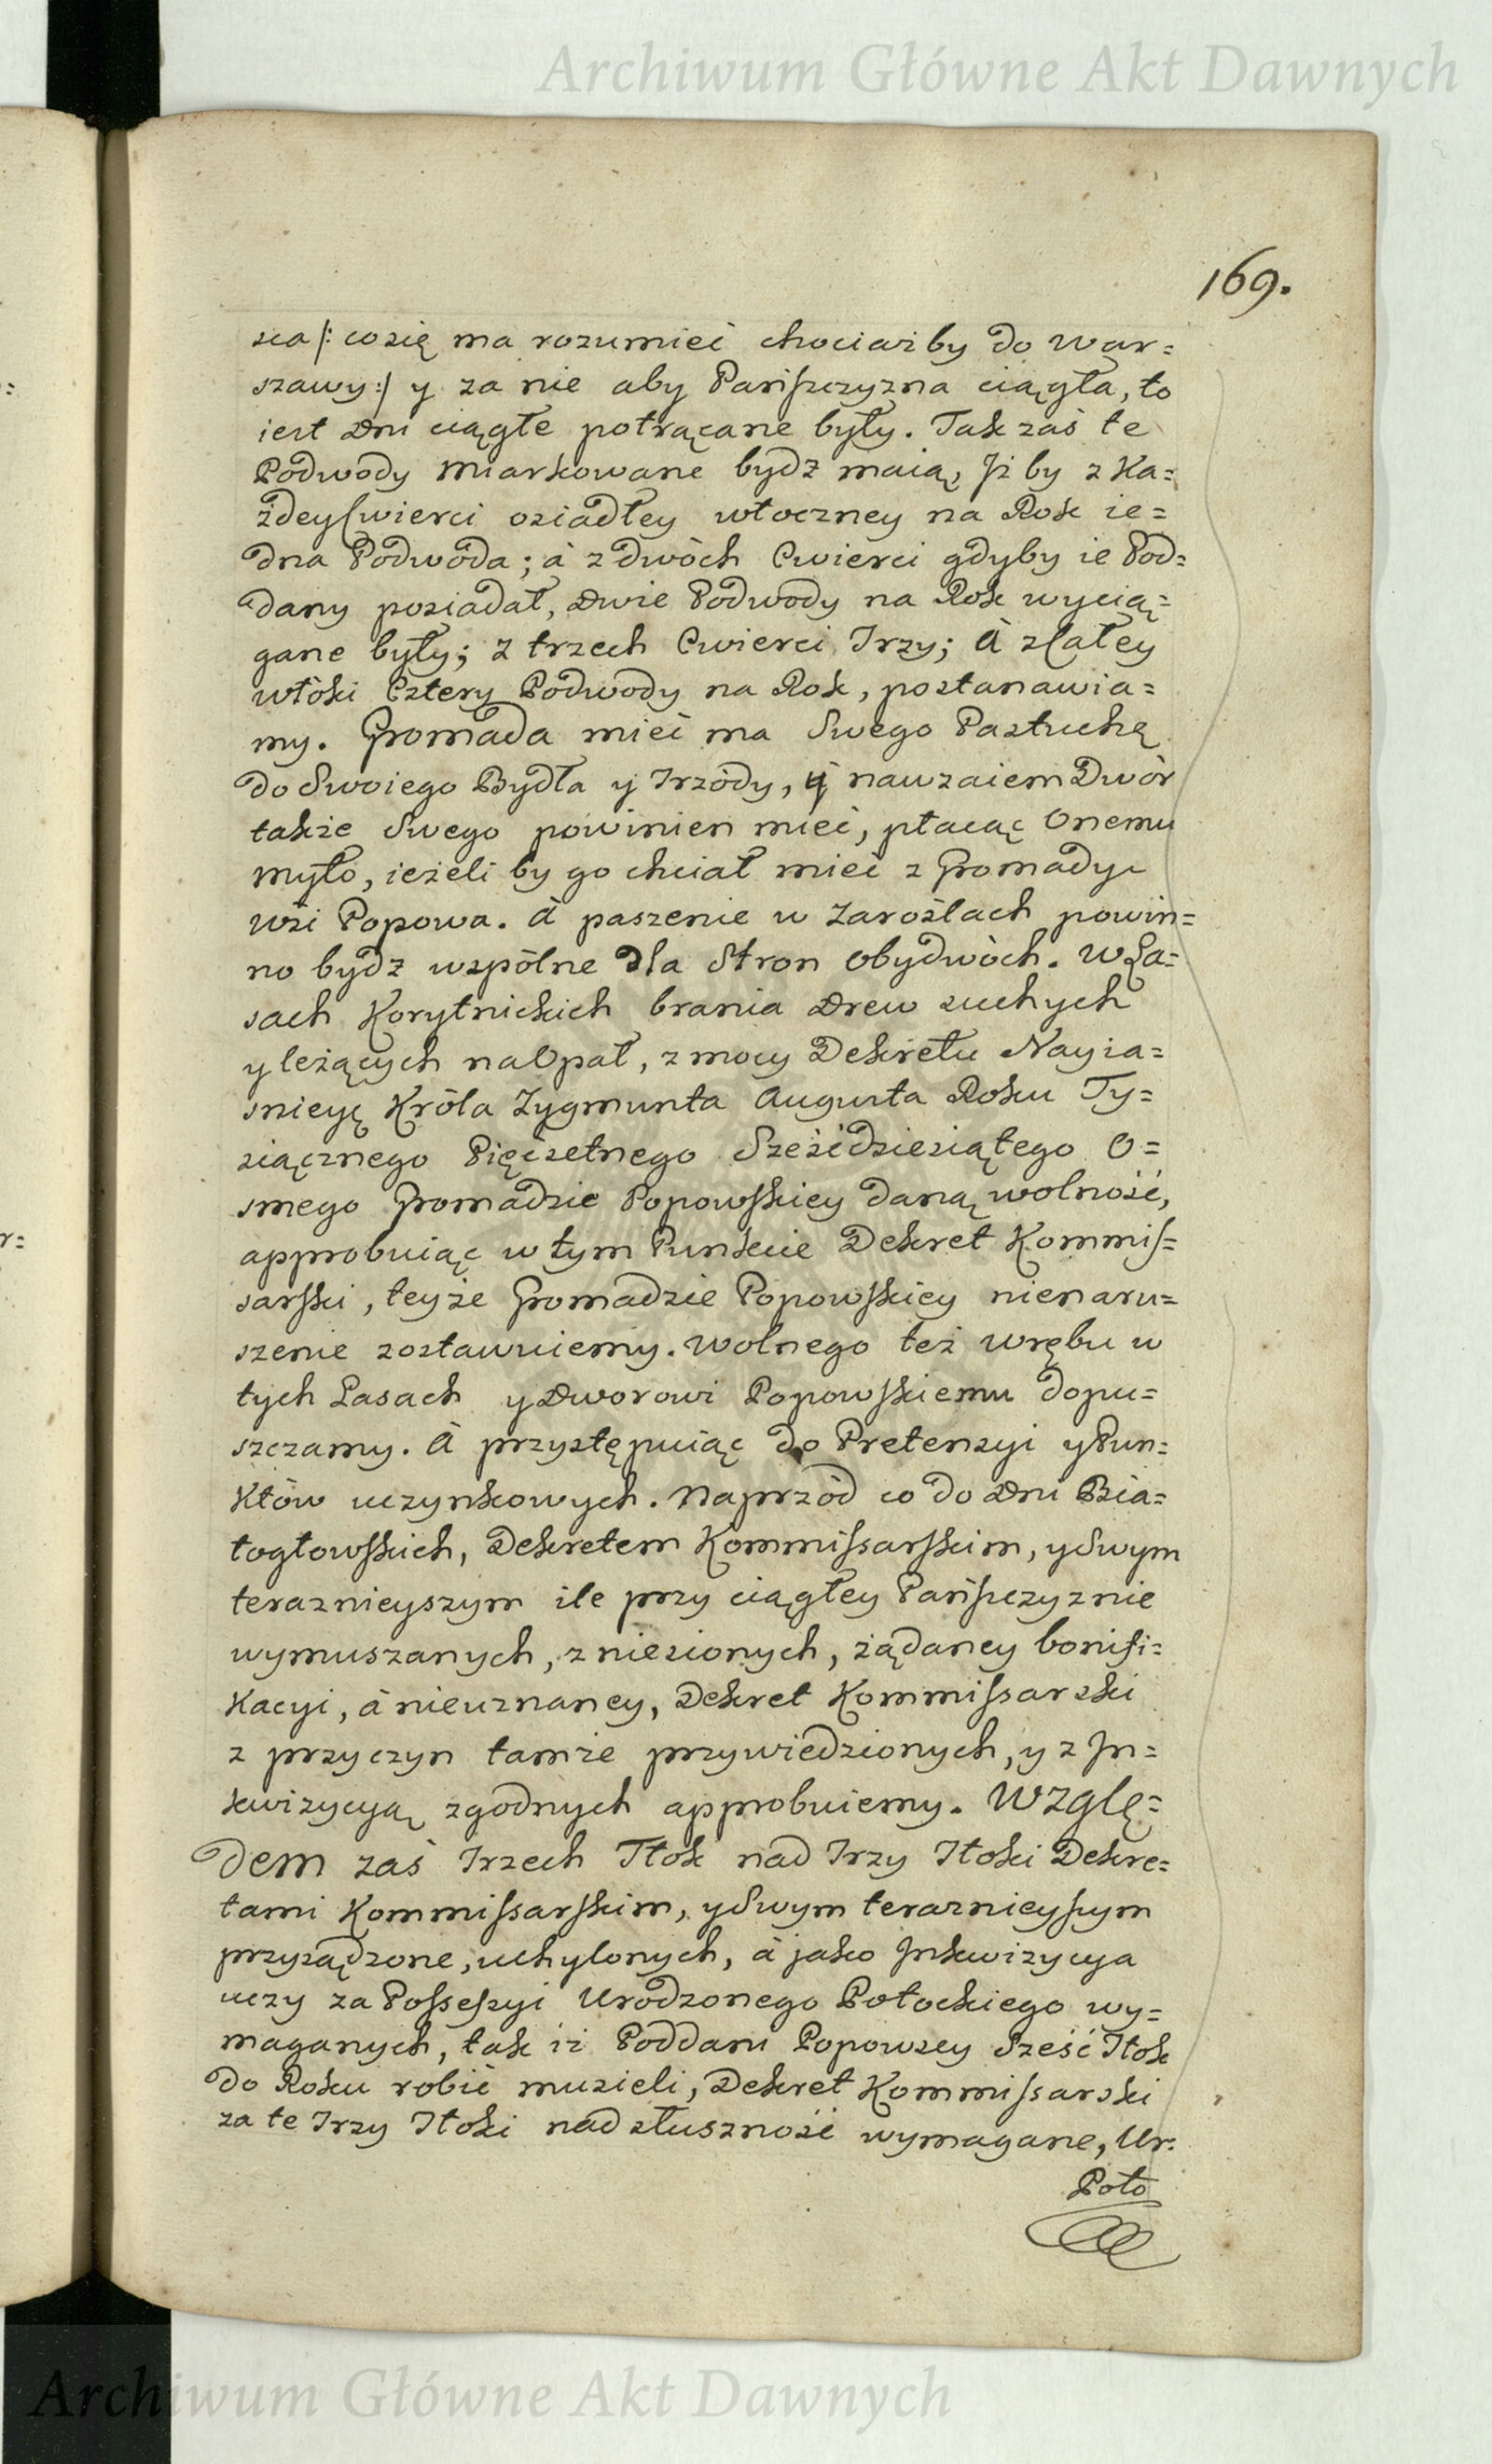 Archiwum Główne Akt Dawnych
169.
sca /: co się ma rozumieć chociażby do War=
szawy :/ y za nie aby Pańszczyzna ciągła, to
iest Dni ciągłe potrącane były. Tak zaś te
Podwody miarkowane bydź maią, Jż by z Ka=
żdey Cwierci osiadłey włoczney na Rok ie=
dna Podwóda; à z dwóch Cwierci gdyby ie Pod=
dany posiadał, Dwie Podwody na Rok wycią=
gane były; z trzech Cwierci Trzy; à z Całey
włóki Cztery Podwody na Rok, postanawia=
my. Gromada mieć ma Swego Pastuchę
do Swoiego Bydła y Trzódy, y nawzaiem Dwór
także Swego powinien mieć, płacąc Onemu
myto, ieżeli by go chciał mieć z Gromady
wsi Popowa. à paszenie w Zaroślach powin=
no bydź wspólne dla Stron Obydwóch. W La=
sach Korytnickich brania Drew suchych
y leżących na Opał, z mocy Dekretu Nayia=
snieyę Króla Zygmunta Augusta Roku Ty=
siącznego Pięćsetnego Sześćdziesiątego O=
smego Gromadzie Popowskiey daną wolność,
approbuiąc w tym Punkcie Dekret Kommis=
sarski, teyże Gromadzie Popowskiey nienaru=
szenie zostawuiemy. Wolnego też wrębu w
tych Lasach y Dworowi Popowskiemu dopu=
szczamy. à przystępuiąc do Pretensyi y Pun=
któw uczynkowych. Naprzód co do Dni Bia=
łogłowskich, Dekretem Kommissarskim, y Swym
teraznieyszym ile przy ciągłey Pańszczyznie
wymuszanych, zniesionych, żądaney bonifi=
kacyi, à nieuznaney, Dekret Kommissarski
z przyczyn tamże przywiedzionych, y z Jn=
kwizycyą zgodnych approbuiemy. Wzglę=
dem zaś Trzech Tłok nad Trzy Tłoki Dekre=
tami Kommissarskim, y Swym teraznieyszym
przysądzone, uchylonych, à jako Jnkwizycya
uczy za Possessyi Urodzonego Potockiego wy=
maganych, tak iż Poddani Popowscy Sześć Tłok
do Roku robić musieli, Dekret Kommissarski
za te Trzy Tłoki nad słuszność wymagane, Ur:
Poto
Archiwum Główne Akt Dawnych